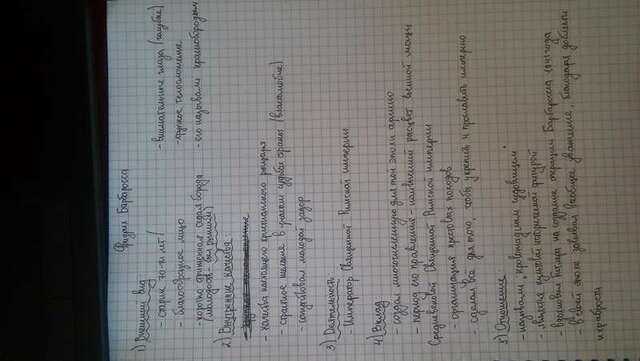 Фридрих Барбаросса
1) Внешний вид
- старик 70-ти лет
- внимательные глаза (голубые)
- благообразное лицо
- крупное телосложение
- коротко стриженная седая борода
(молодость - был рыжим)
- его называли краснобородым
2) Внутренние качества:
- качества настоящего христианского рыцаря
- страстное желание в участии судьбы страны (властолюбие)
- сопутствовал молодой задор
3) Деятельность
- Император Священной Римской империи
4) Вклад
- создал многочисленную для той эпохи армию
- период его правления - наивысший расцвет военной мощи
Средневековой Священной Римской империи
- организация крестовых походов
- сделал всё для того, чтобы укрепить и прославить империю
5) Отношение
- называли "кровожадным чудовищем"
- является культовой исторической фигурой
- вдохновил Гитлера на создание операции Барбаросса 1941 года
- в своей эпохе завоевал всеобщее уважение, благодаря доблести
и храбрости